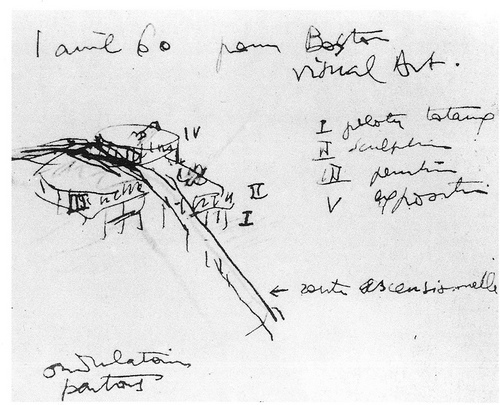 1 avril 60 pour Boston
Visual Art.
I pilotis
II sculpture
III peinture
V exposition
IV
III
II
I
← route ascensionnelle
ondulatoires
partout